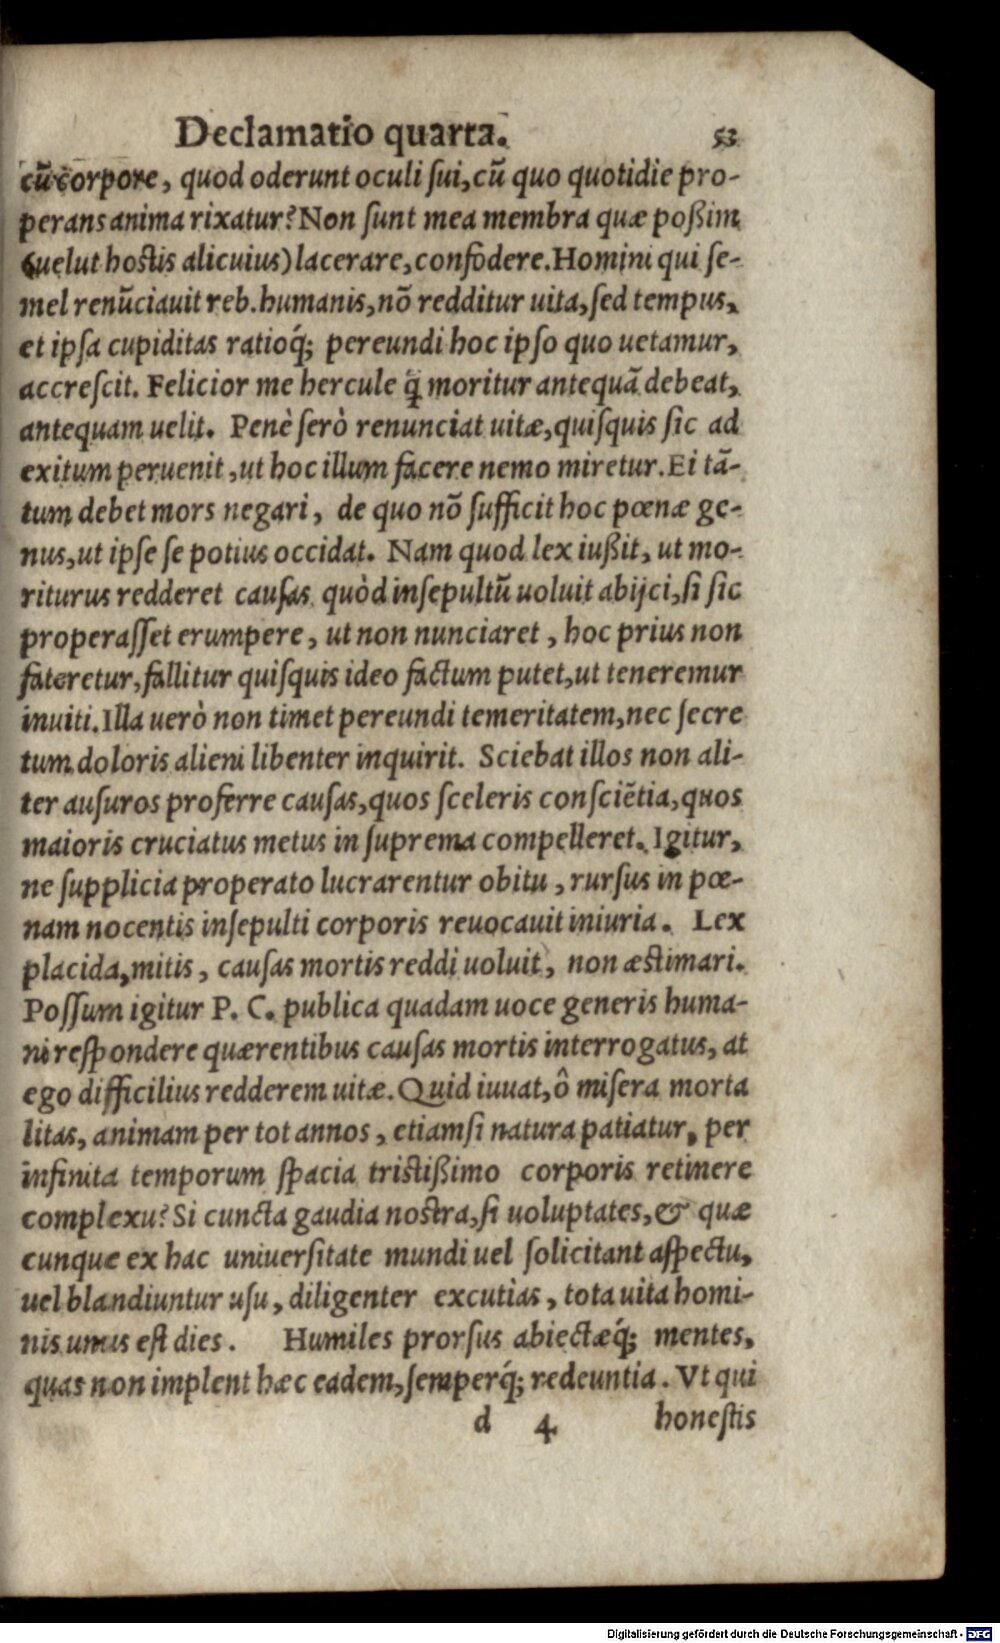 Declamatio quarta. 53
cũ corpore, quod oderunt oculi ſui, cũ quo quotidie pro-
perans anima rixatur? Non ſunt mea membra quæ poßim
(uelut hostis alicuius) lacerare, confodere. Homini qui ſe-
mel renũciauit reb. humanis, nõ redditur uita, ſed tempus,
et ipſa cupiditas ratioq́; pereundi hoc ipſo quo uetamur,
accreſcit. Felicior me hercule q̃ moritur antequã debeat,
antequam uelit. Penè ſerò renunciat uitæ, quiſquis ſic ad
exitum peruenit, ut hoc illum facere nemo miretur. Ei tã-
tum debet mors negari, de quo nõ ſufficit hoc pœnæ ge-
nus, ut ipſe ſe potius occidat. Nam quod lex iußit, ut mo-
riturus redderet cauſas, quòd inſepultũ uoluit abijci, ſi ſic
properaſſet erumpere, ut non nunciaret, hoc prius non
fateretur, fallitur quiſquis ideo factum putet, ut teneremur
inuiti. Illa uerò non timet pereundi temeritatem, nec ſecre
tum doloris alieni libenter inquirit. Sciebat illos non ali-
ter auſuros proferre cauſas, quos ſceleris conſciẽtia, quos
maioris cruciatus metus in ſuprema compelleret. Igitur,
ne ſupplicia properato lucrarentur obitu, rurſus in pœ-
nam nocentis inſepulti corporis reuocauit iniuria. Lex
placida, mitis, cauſas mortis reddi uoluit, non æstimari.
Poſſum igitur P. C. publica quadam uoce generis huma-
ni reſpondere quærentibus cauſas mortis interrogatus, at
ego difficilius redderem uitæ. Quid iuuat, ô miſera morta
litas, animam per tot annos, etiamſi natura patiatur, per
infinita temporum ſpacia tristißimo corporis retinere
complexu? Si cuncta gaudia nostra, ſi uoluptates, & quæ
cunque ex hac uniuerſitate mundi uel ſolicitant aſpectu,
uel blandiuntur uſu, diligenter excutias, tota uita homi-
nis unus eſt dies. Humiles prorſus abiectæq́; mentes,
quas non implent hæc eadem, ſemperq́; redeuntia. Vt qui
d 4 honeſtis
Digitalisierung gefördert durch die Deutsche Forschungsgemeinschaft - DFG